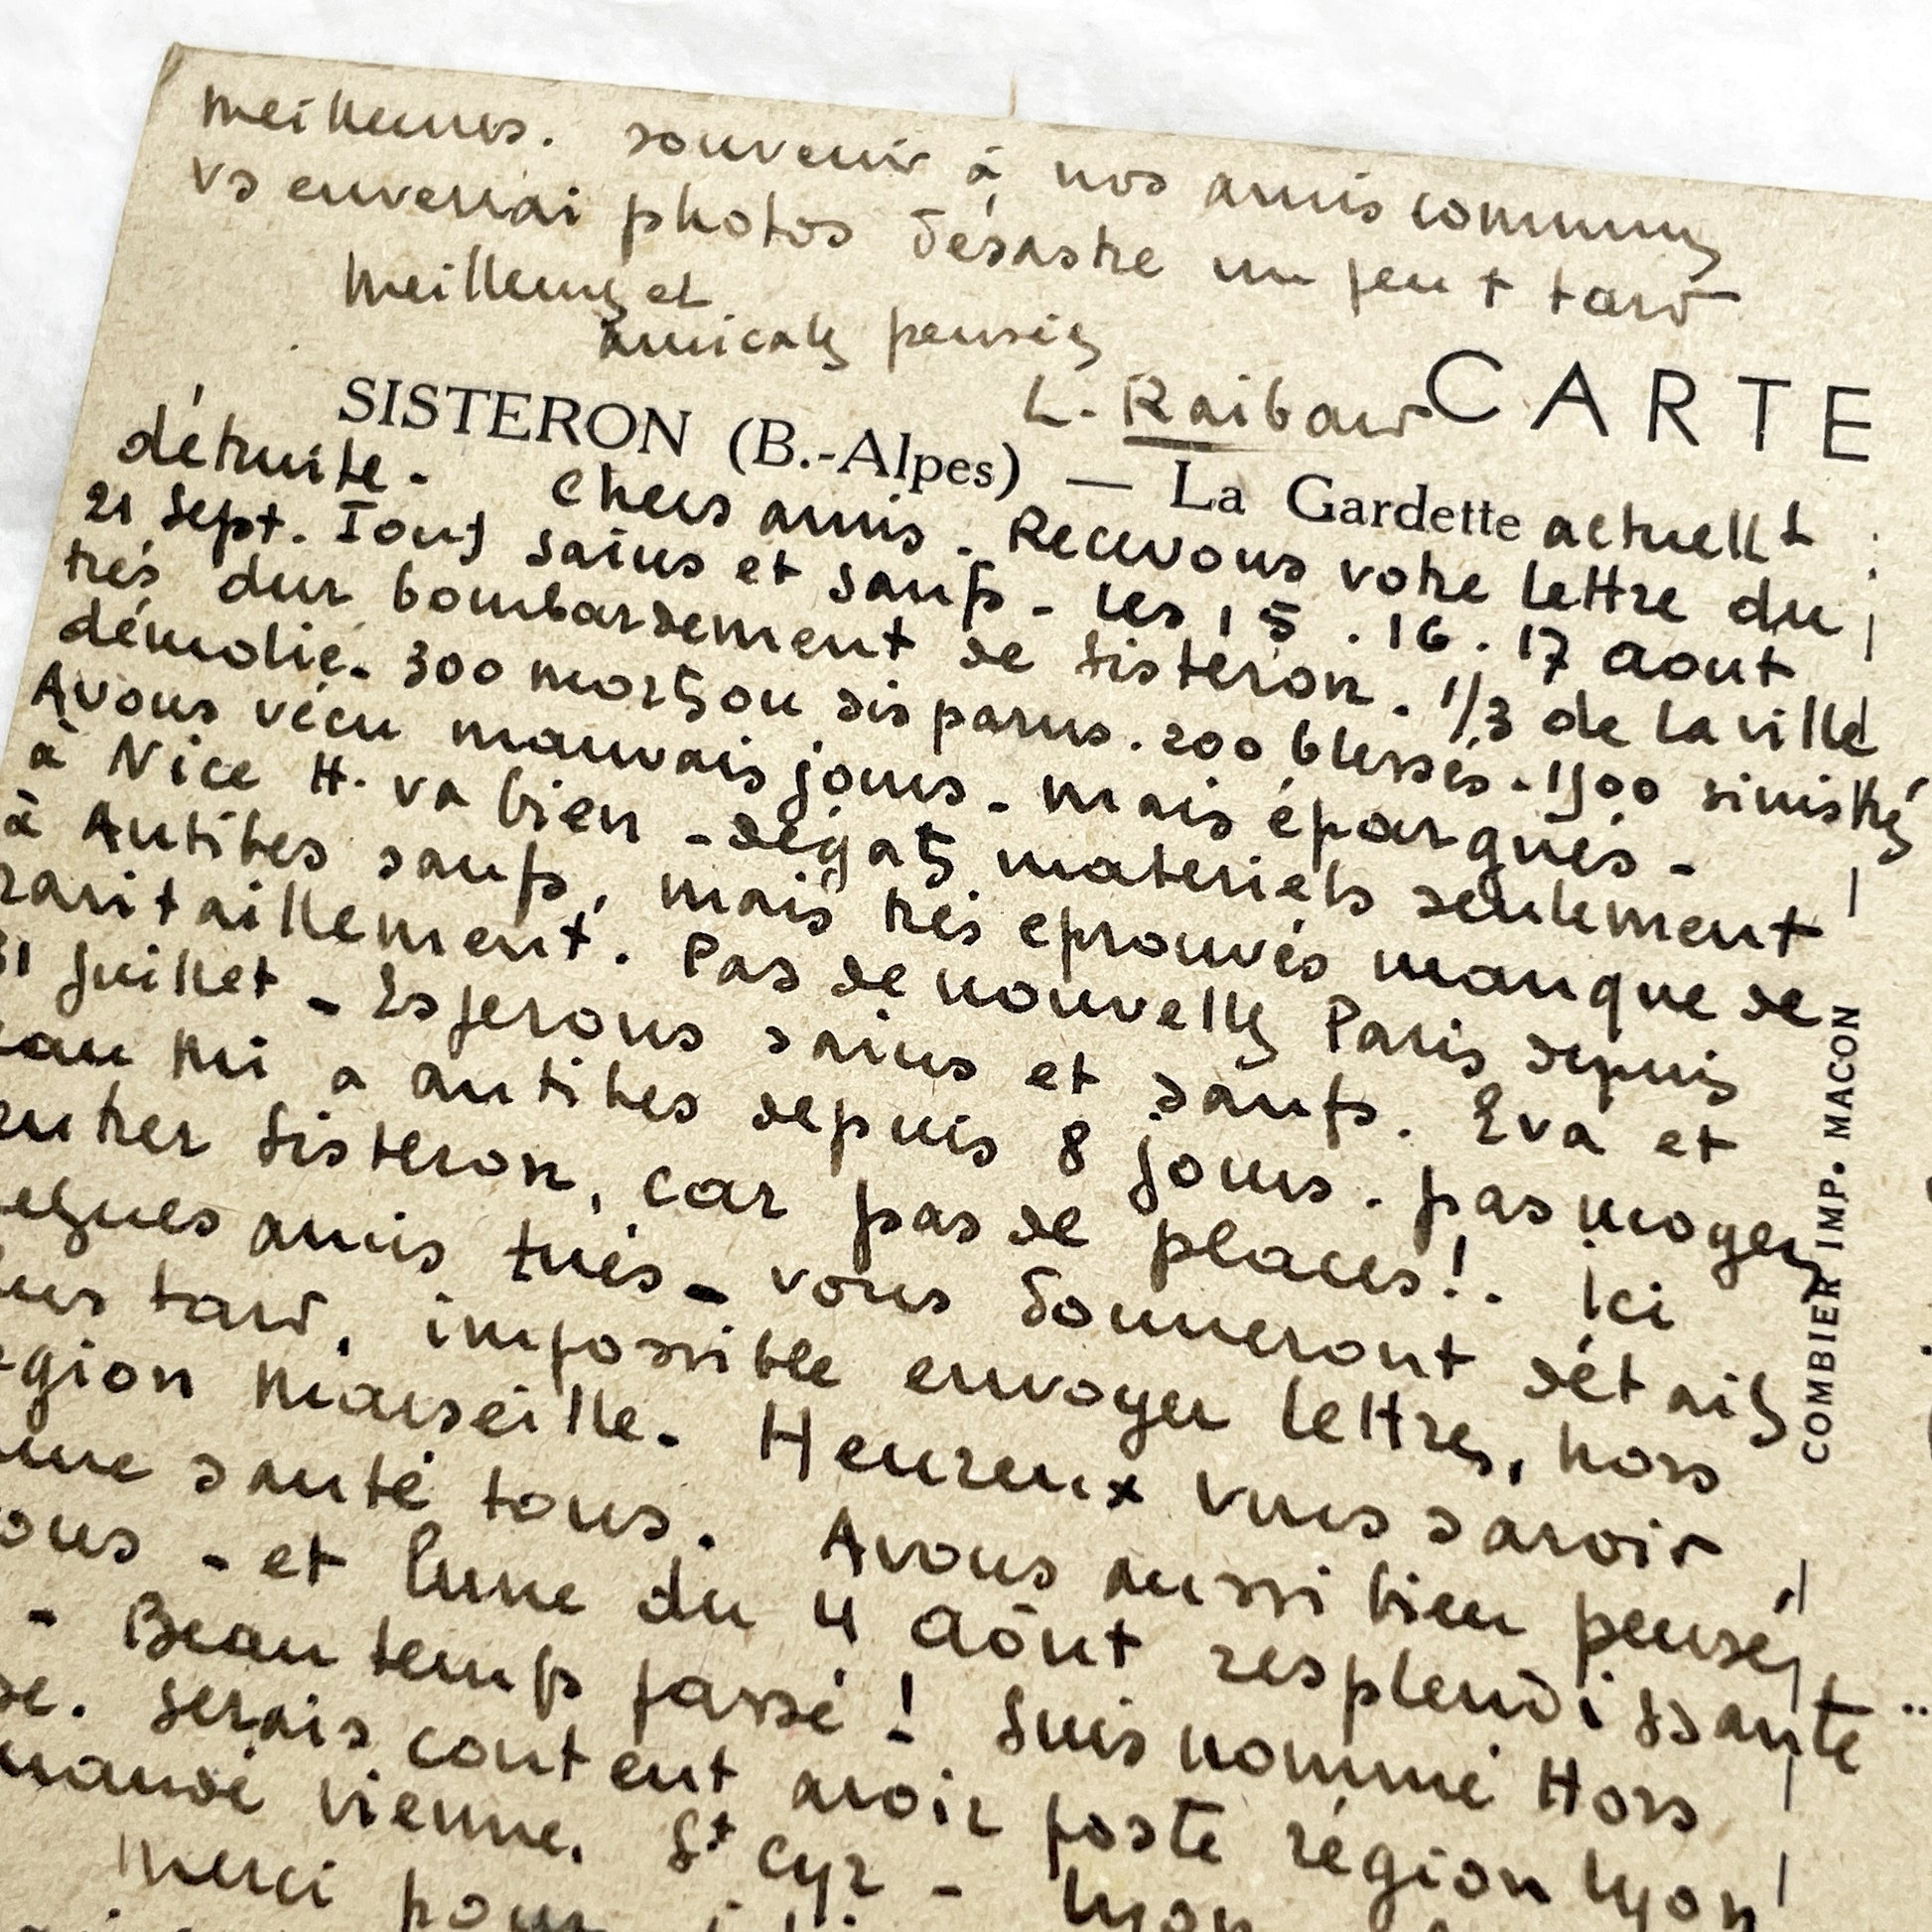 meilleures. souvenir à nos amis communs
vs enverrai photos désastre un peu + tard
meilleurs et
amicales pensées
L. Raibaud
CARTE
SISTERON (B.-Alpes) — La Gardette actuellt
détruite. Chers amis. Recevons votre lettre du
21 Sept. Tous sains et saufs - les 15. 16. 17 aout
très dur bombardement de Sisteron. 1/3 de la ville
démolie. 300 morts ou disparus. 200 blessés. 1500 sinistrés
Avons vécu mauvais jours - mais épargnés -
à Nice H. va bien - dégats materiels seulement
à Antibes saufs, mais très eprouvés manque de
ravitaillement. Pas de nouvelles Paris depuis
31 Juillet - Esperons sains et saufs. Eva et
a antibes depuis 8 jours. pas moyen
Sisteron, car pas de places!. Ici
amis tués - vous donneront détails
tard, impossible envoyer lettres, hors
gion Marseille. Heureux vous savoir
santé tous. Avons aussi bien pensé
ous - et lune du 4 Août resplendissante
- Beau temps passé! Suis nommé Hors
se. Serais content avoir poste région Lyon
mandé Vienne. St Cyr - Lyon
Merci pour
COMBIER IMP. MACON